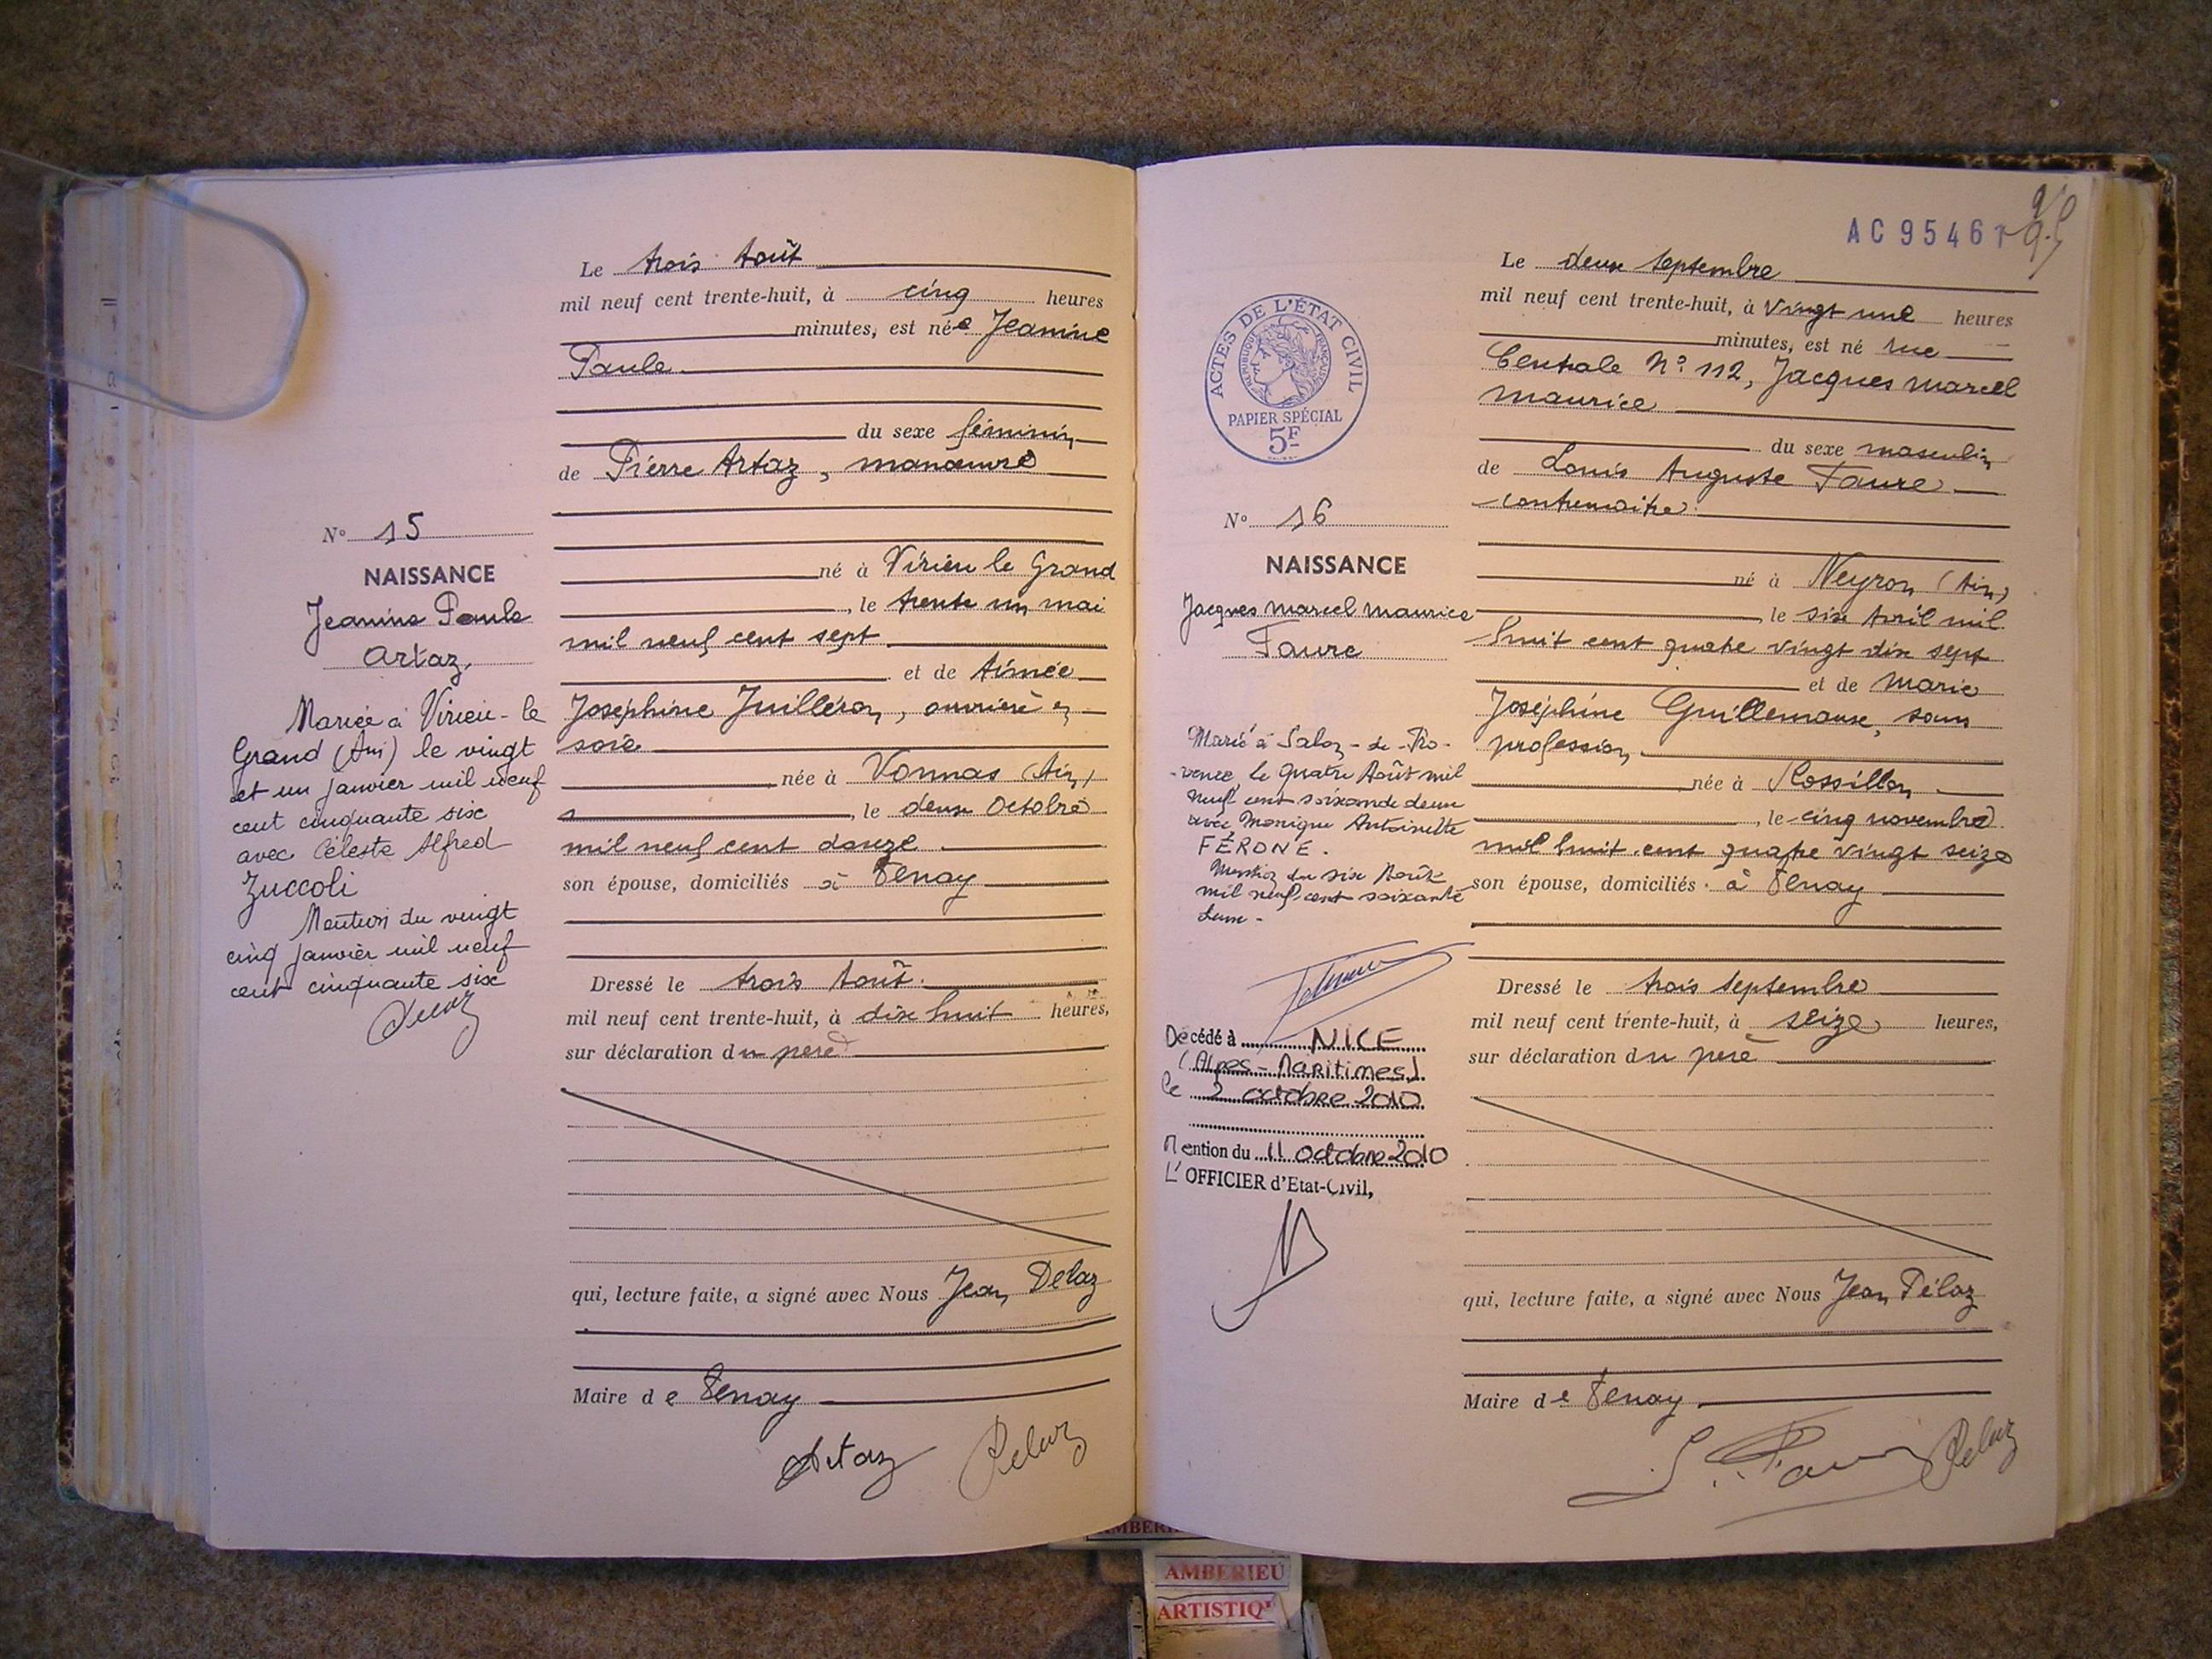 Le trois Août
mil neuf cent trente-huit, à cinq heures
minutes, est née Jeanine
Paule
du sexe féminin
de Pierre Artaz, manœuvre
né à Virieu le Grand
, le trente un mai
mil neuf cent sept
et de Aimée
Joséphine Juilléron, ouvrière en
soie
née à Vonnas (Ain)
, le deux Octobre
mil neuf cent douze
son épouse, domiciliés à Tenay
Dressé le trois Août
mil neuf cent trente-huit, à dix huit heures,
sur déclaration du père
qui, lecture faite, a signé avec Nous Jean Pélaz
Maire de Tenay
Artaz Pelaz
N° 15
NAISSANCE
Jeanine Paule
Artaz
Mariée à Virieu-le
Grand (Ain) le vingt
et un janvier mil neuf
cent cinquante six
avec Céleste Alfred
Zuccoli
Mention du vingt
cinq janvier mil neuf
cent cinquante six
AC 95467
Le deux septembre
mil neuf cent trente-huit, à vingt une heures
minutes, est né rue
Centrale N° 112, Jacques Marcel
Maurice
du sexe masculin
de Louis Auguste Faure
contremaitre
né à Neyron (Ain)
le six Avril mil
huit cent quatre vingt dix sept
et de Marie
Joséphine Guillemause, sans
profession
née à Rossillon
, le cinq novembre
mil huit cent quatre vingt seize
son épouse, domiciliés à Tenay
Dressé le trois septembre
mil neuf cent trente-huit, à seize heures,
sur déclaration du père
qui, lecture faite, a signé avec Nous Jean Pélaz
Maire de Tenay
L. Faure Pelaz
ACTES DE L'ÉTAT CIVIL
RÉPUBLIQUE FRANÇAISE
PAPIER SPÉCIAL
5F
N° 16
NAISSANCE
Jacques Marcel Maurice
Faure
Marié à Salon-de-Pro-
-vence, le quatre Août mil
neuf cent soixante deux
avec Monique Antoinette
FÉRONE.
Mention du six Août
mil neuf cent soixante
deux -
Décédé à NICE
(Alpes-Maritimes)
le 2 octobre 2010
Mention du 11 octobre 2010
L'OFFICIER d'Etat-Civil,
AMBERIEU
ARTISTIQ